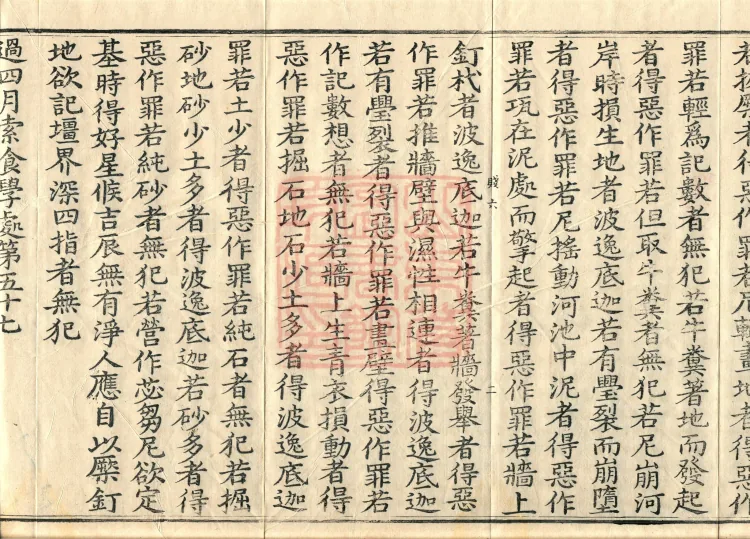 惡作罪若尼輕畫地者得惡作
罪若輕爲記數者無犯若牛糞著地而發起
者得惡作罪若但取牛糞者無犯若尼崩河
岸時損生地者波逸底迦若有舋裂而崩墮
者得惡作罪若尼搖動河池中泥者得惡作
罪若瓨在泥處而擎起者得惡作罪若牆上
賤六 二
釘杙者波逸底迦若牛糞著牆發舉者得惡
作罪若推牆壁與濕性相連者得波逸底迦
若有舋裂者得惡作罪若畫壁得惡作罪若
作記數想者無犯若牆上生青衣損動者得
惡作罪若掘石地石少土多者得波逸底迦
罪若土少者得惡作罪若純石者無犯若掘
砂地砂少土多者得波逸底迦若砂多者得
惡作罪若純砂者無犯若營作苾芻尼欲定
基時得好星候吉辰無有淨人應自以橛釘
地欲記壇界深四指者無犯
過四月索食學處第五十七